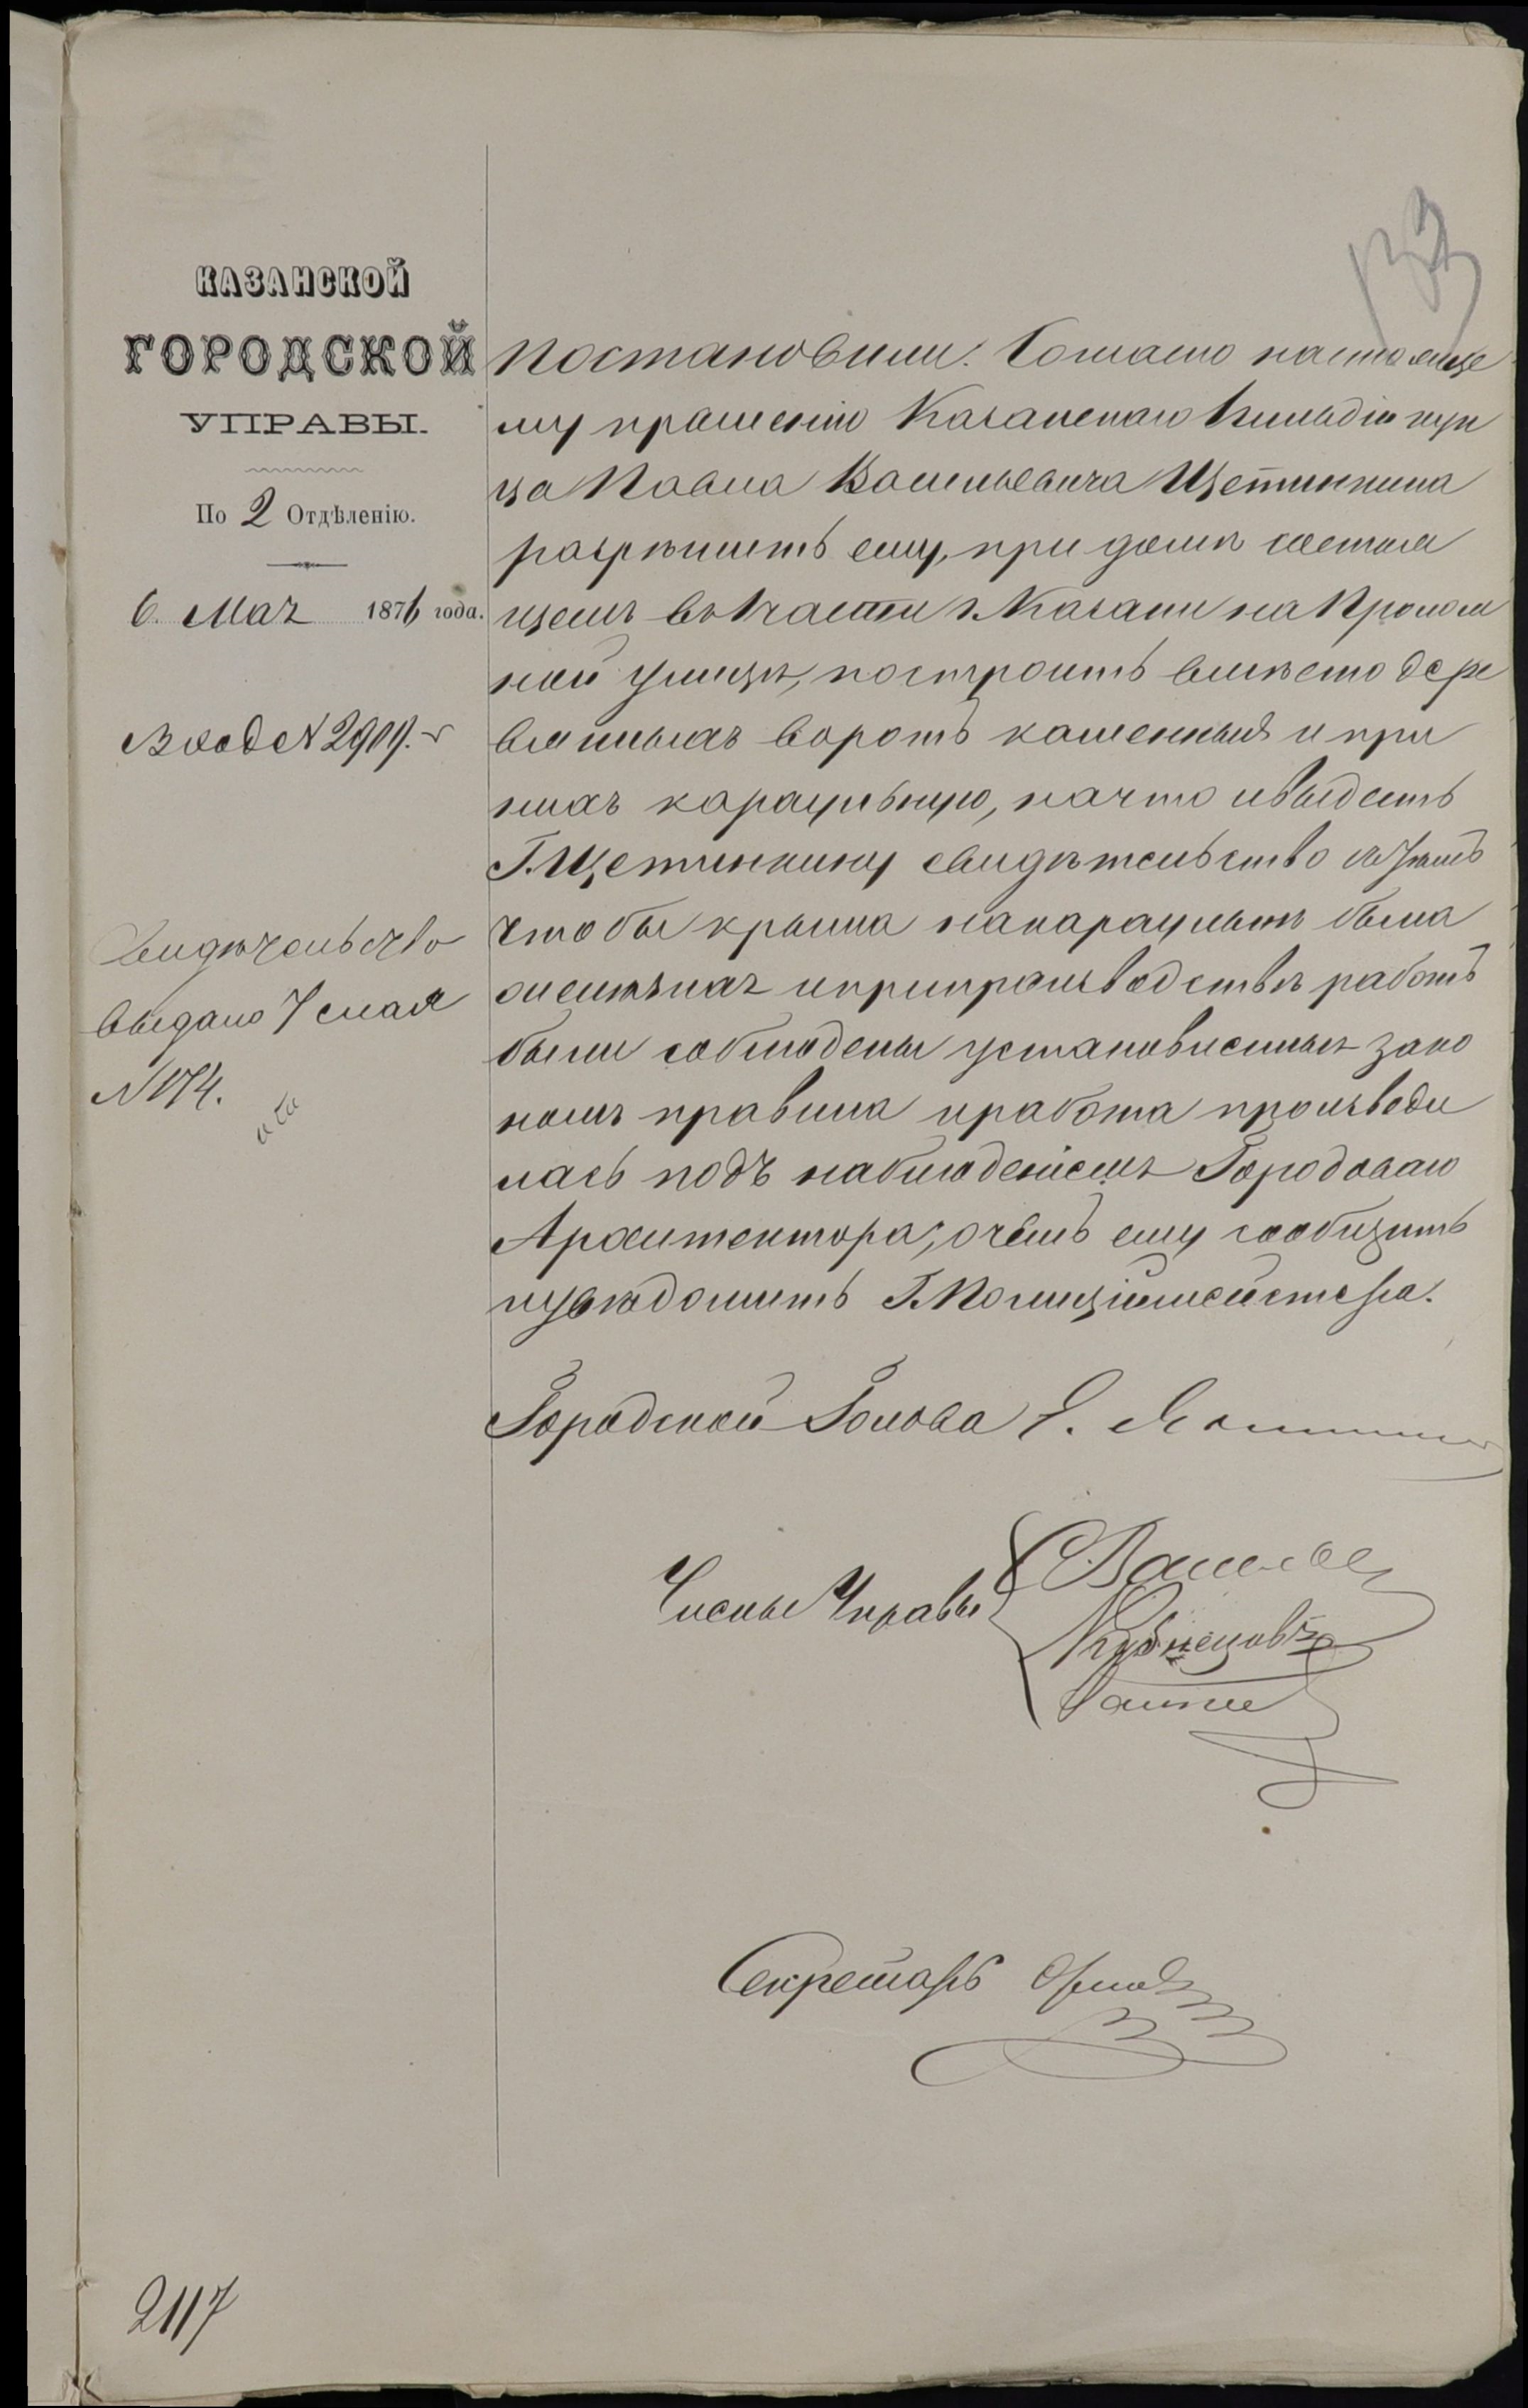 КАЗАНСКОЙ
ГОРОДСКОЙ
УПРАВЫ.
По 2 Отдѣленію.
6. Мая 1876 года.
Вход № 2909.
Свидѣтельство
выдано 7 мая
№ 174.
Постановили. Согласно настояще
му прошенію Казанскаго 1 гильдіи куп
ца Павла Васильевича Щетинкина
разрѣшить ему, при домѣ состоя
щемъ въ 1 части г. Казани на Пролом
ной улицѣ, построить вмѣсто дере
вянныхъ воротъ каменныя и при
нихъ караульную, на что и выдать
Г. Щетинкину свидѣтельство съ тѣмъ
чтобы крыша на караульнѣ была
желѣзная и при производствѣ работъ
были соблюдены установленныя зако
номъ правила и работа производи
лась подъ наблюденіемъ Городоваго
Архитектора, о чемъ ему сообщить
и увѣдомить Г. Полиціймейстера.
Городской Голова
Члены Управы
Васильев
Кузнецовъ
Секретарь
2117